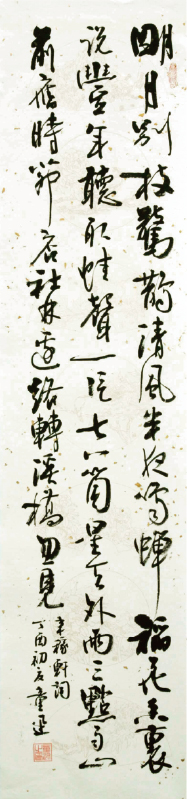 明月別枝驚鵲清風半夜鳴蟬稻花香裏
説豐年聽取蛙聲一片七八箇星天外兩三點雨山
前舊時茆店社林邊路轉溪橋忽見
辛稼軒詞
丁酉初